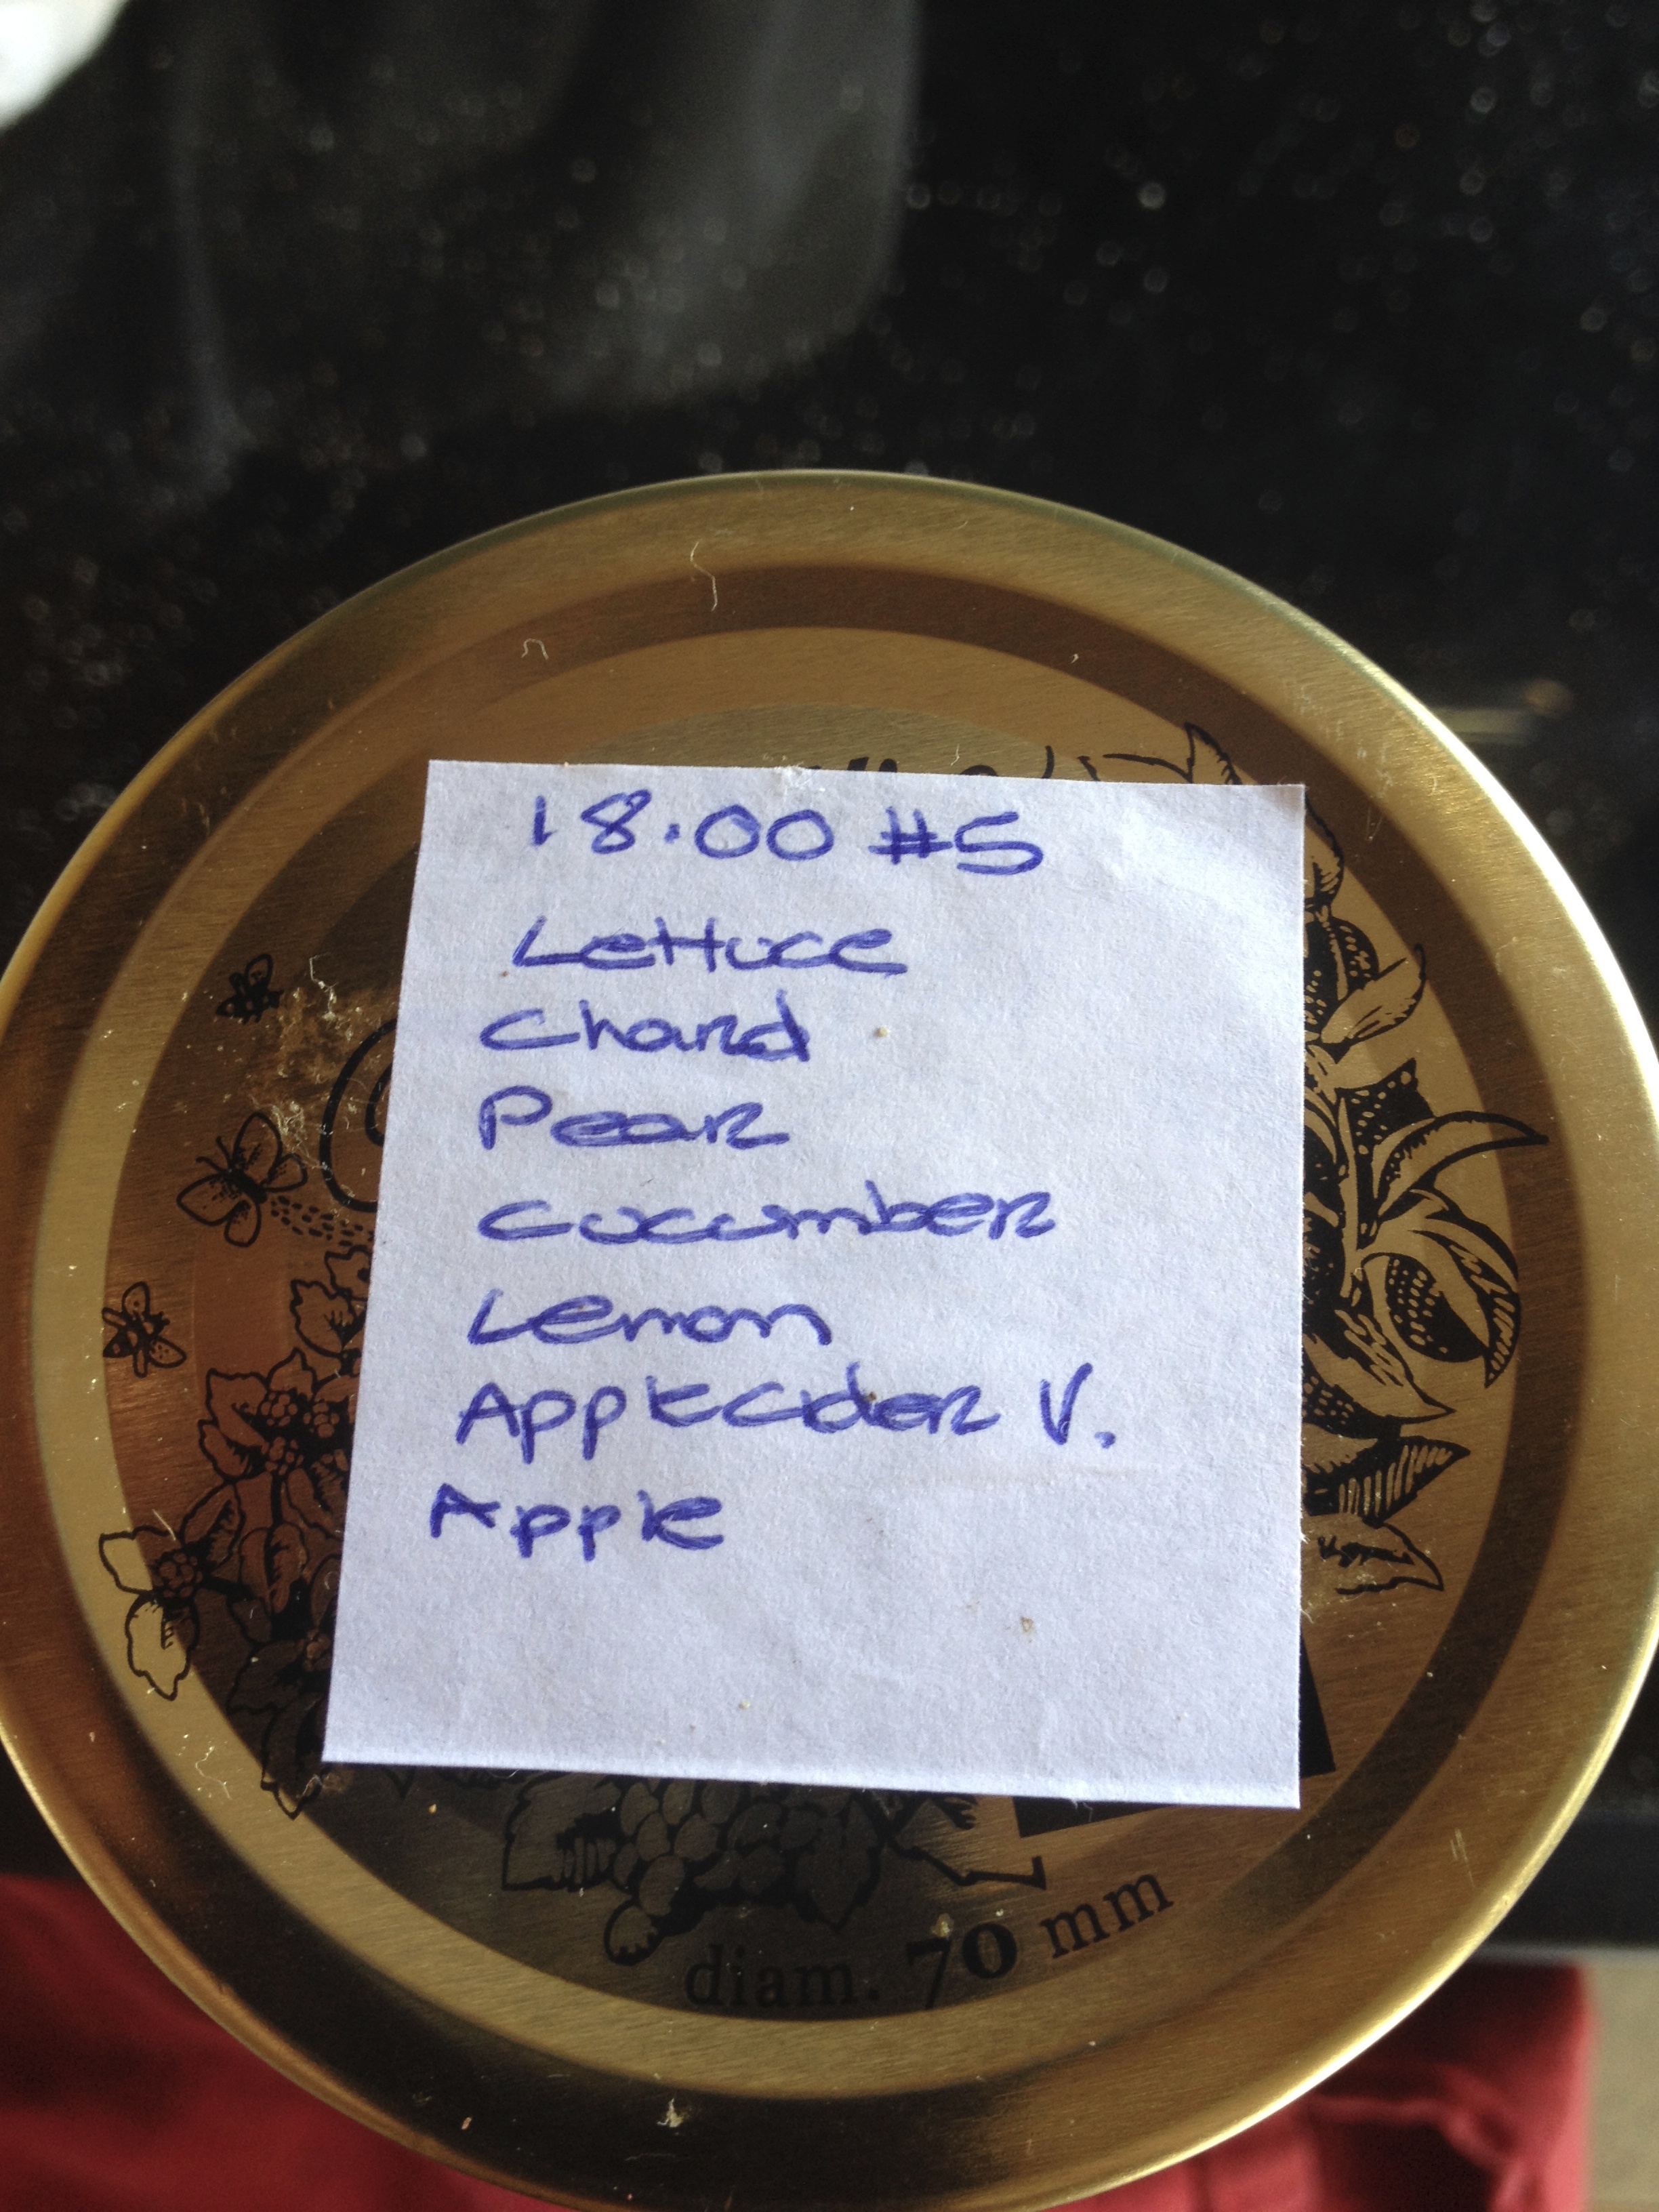 18.00 #5
Lettuce
Chard
Pear
Cucumber
Lemon
Apple Cider V.
Apple
diam. 70 mm